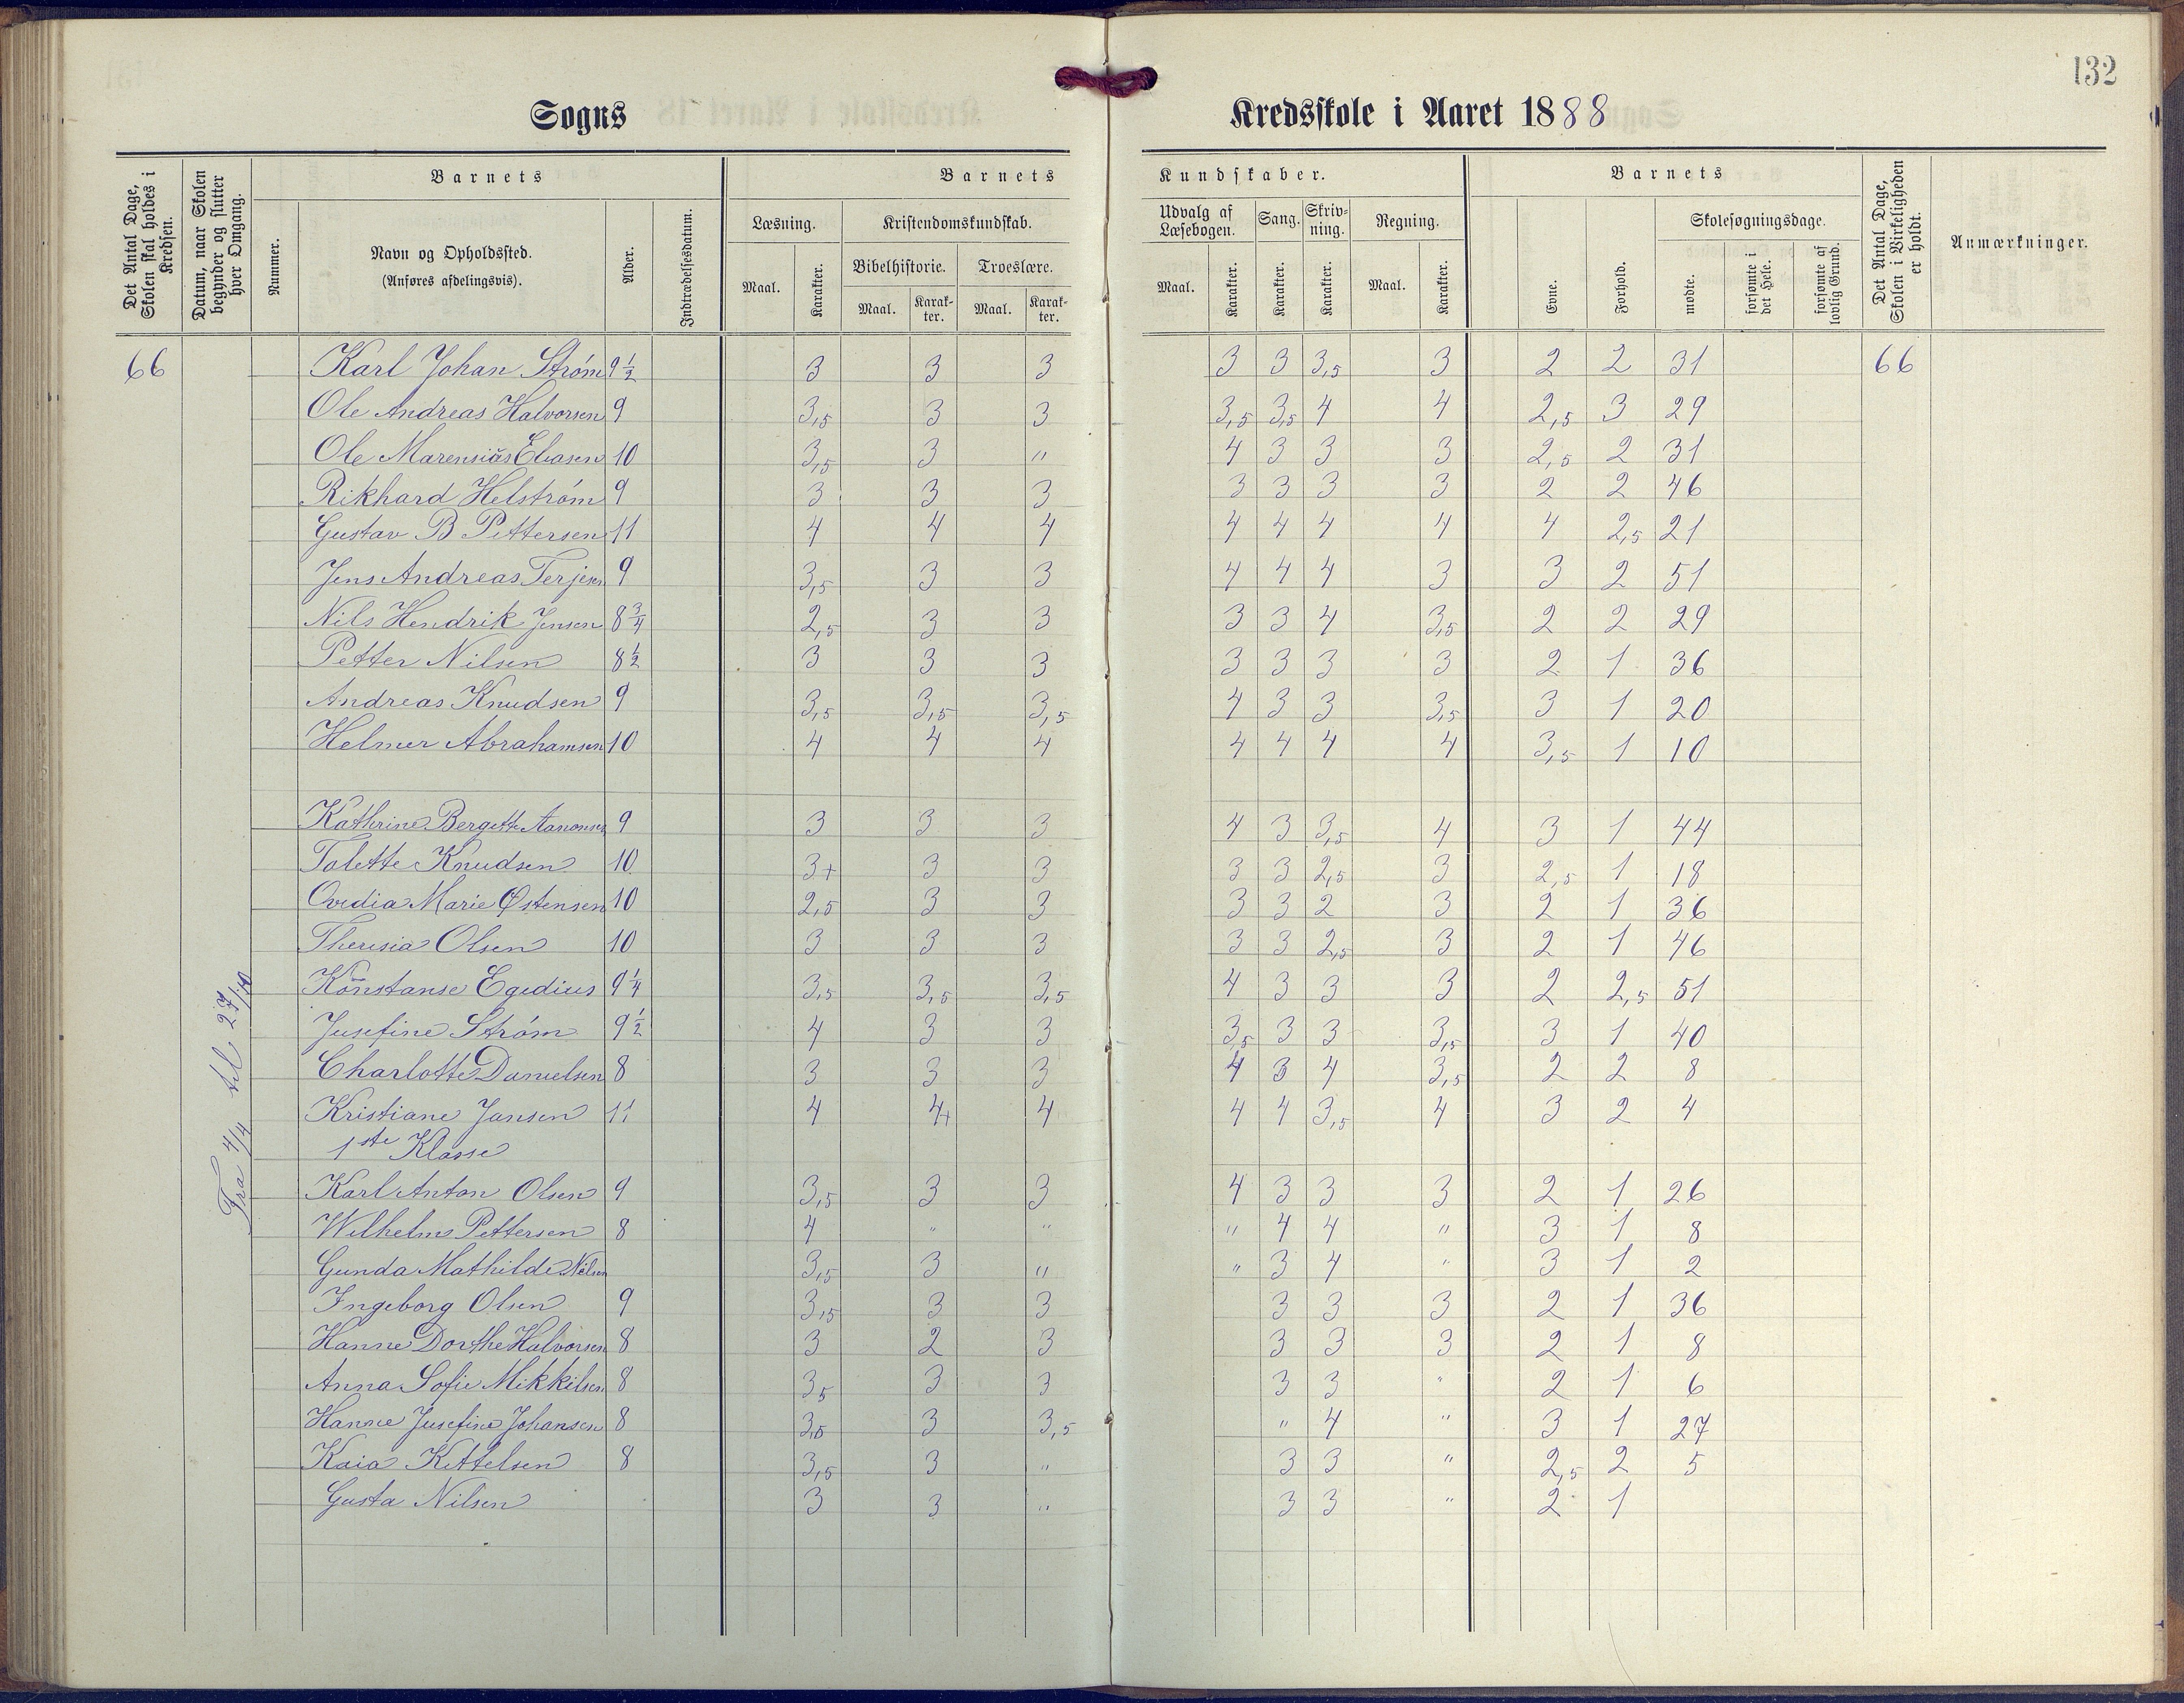 132
Sogns Kredsskole i Aaret 1888
Det Antal Dage, Skolen skal holdes i Kredsen.
Datum, naar Skolen begynder og slutter hver Omgang.
Nummer.
Barnets
Navn og Opholdssted.
(Anføres afdelingsvis).
Alder.
Indtrædelsesdatum.
Barnets Kundskaber.
Læsning.
Maal. Karakter.
Kristendomskundskab.
Bibelhistorie. Troeslære.
Maal. Karakter. Maal. Karakter.
Udvalg af Læsebogen.
Maal. Karakter.
Sang.
Karakter.
Skrivning.
Karakter.
Regning.
Maal. Karakter.
Barnets
Evne.
Forhold.
Skolesøgningsdage.
mødte.
forsømte i det Hele.
forsømte af lovlig Grund.
Det Antal Dage, Skolen i Virkeligheden er holdt.
Anmærkninger.
Fra 4/4 til 27/10
66 Karl Johan Strøm 9½ 3 3 3 3 3 3,5 3 2 2 31 66
Ole Andreas Halvorsen 9 3,5 3 3 3,5 3,5 4 4 2,5 3 29
Ole Marensiäs Eliasen 10 3,5 3 " 4 3 3 3 2,5 2 31
Rikhard Helstrøm 9 3 3 3 3 3 3 3 2 2 46
Gustav B Pettersen 11 4 4 4 4 4 4 4 4 2,5 21
Jens Andreas Terjesen 9 3,5 3 3 4 4 4 3 3 2 51
Nils Hendrik Jensen 8¾ 2,5 3 3 3 3 4 3,5 2 2 29
Petter Nilsen 8½ 3 3 3 3 3 3 3 2 1 36
Andreas Knudsen 9 3,5 3,5 3,5 4 3 3 3,5 3 1 20
Helmer Abrahamsen 10 4 4 4 4 4 4 4 3,5 1 10
Kathrine Bergette Aanonsen 9 3 3 3 4 3 3,5 4 3 1 44
Talette Knudsen 10 3+ 3 3 3 3 2,5 3 2,5 1 18
Ovedia Marie Østensen 10 2,5 3 3 3 3 2 3 2 1 36
Theresia Olsen 10 3 3 3 3 3 2,5 3 2 1 46
Konstanse Egedius 9¼ 3,5 3,5 3,5 4 3 3 3 2 2,5 51
Jusefine Strøm 9½ 4 3 3 3,5 3 3 3,5 3 1 40
Charlotte Danielsen 8 3 3 3 4 3 4 3,5 2 2 8
Kristiane Jansen 11 4 4+ 4 4 4 3,5 4 3 2 4
1ste Klasse
Karl Anton Olsen 9 3,5 3 3 4 3 3 3 2 1 26
Wilhelm Pettersen 8 4 " " " 4 4 " 3 1 8
Gunda Mathilde Nilsen 3,5 3 " " 3 4 " 3 1 2
Ingeborg Olsen 9 3,5 3 3 3 3 3 2 1 36
Hanne Dorthe Halvorsen 8 3 2 3 3 3 3 2 1 8
Anna Sofie Mikkilsen 8 3,5 3 3 3 3 " 2 1 6
Hanne Jusefine Johansen 8 3,5 3 3,5 " 4 " 3 1 27
Kaia Kettelsen 8 3,5 3 " 3 3 " 2,5 2 5
Gusta Nilsen 3 3 " 3 3 " 2 1